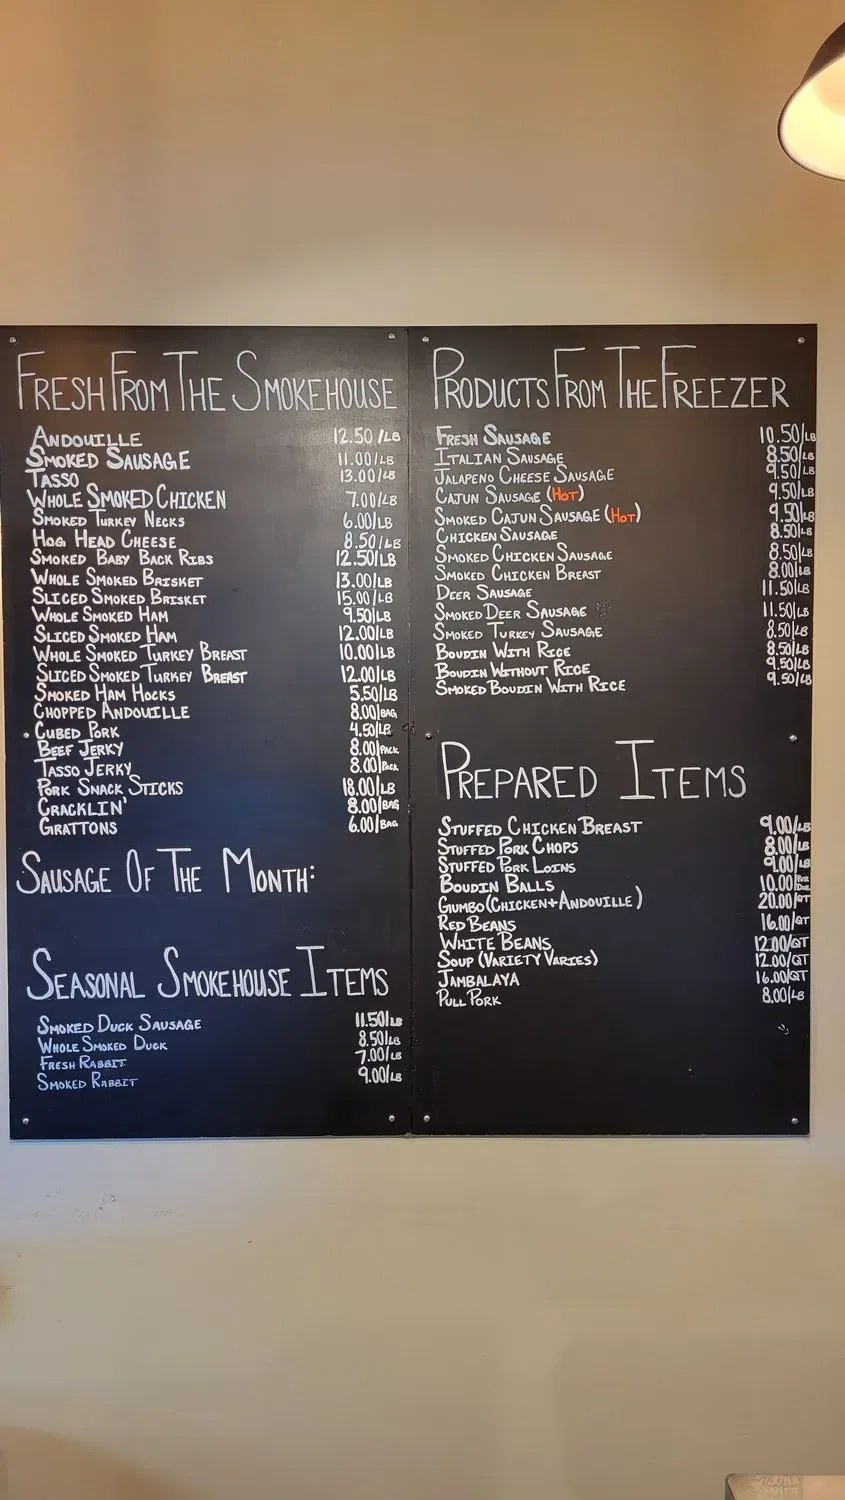 FRESH FROM THE SMOKEHOUSE
ANDOUILLE 12.50/LB
SMOKED SAUSAGE 11.00/LB
TASSO 13.00/LB
WHOLE SMOKED CHICKEN 7.00/LB
SMOKED TURKEY NECKS 6.00/LB
HOG HEAD CHEESE 8.50/LB
SMOKED BABY BACK RIBS 12.50/LB
WHOLE SMOKED BRISKET 13.00/LB
SLICED SMOKED BRISKET 15.00/LB
WHOLE SMOKED HAM 9.50/LB
SLICED SMOKED HAM 12.00/LB
WHOLE SMOKED TURKEY BREAST 10.00/LB
SLICED SMOKED TURKEY BREAST 12.00/LB
SMOKED HAM HOCKS 5.50/LB
CHOPPED ANDOUILLE 8.00/BAG
CUBED PORK 4.50/LB
BEEF JERKY 8.00/PACK
TASSO JERKY 8.00/PACK
PORK SNACK STICKS 18.00/LB
CRACKLIN' 8.00/BAG
GRATTONS 6.00/BAG
SAUSAGE OF THE MONTH:
SEASONAL SMOKEHOUSE ITEMS
SMOKED DUCK SAUSAGE 11.50/LB
WHOLE SMOKED DUCK 8.50/LB
FRESH RABBIT 7.00/LB
SMOKED RABBIT 9.00/LB
PRODUCTS FROM THE FREEZER
FRESH SAUSAGE 10.50/LB
ITALIAN SAUSAGE 8.50/LB
JALAPENO CHEESE SAUSAGE 9.50/LB
CAJUN SAUSAGE (HOT) 9.50/LB
SMOKED CAJUN SAUSAGE (HOT) 9.50/LB
CHICKEN SAUSAGE 8.50/LB
SMOKED CHICKEN SAUSAGE 8.50/LB
SMOKED CHICKEN BREAST 8.00/LB
DEER SAUSAGE 11.50/LB
SMOKED DEER SAUSAGE 11.50/LB
SMOKED TURKEY SAUSAGE 8.50/LB
BOUDIN WITH RICE 8.50/LB
BOUDIN WITHOUT RICE 9.50/LB
SMOKED BOUDIN WITH RICE 9.50/LB
PREPARED ITEMS
STUFFED CHICKEN BREAST 9.00/LB
STUFFED PORK CHOPS 8.00/LB
STUFFED PORK LOINS 9.00/LB
BOUDIN BALLS 10.00/
GUMBO (CHICKEN+ANDOUILLE) 20.00/QT
RED BEANS 16.00/QT
WHITE BEANS 12.00/QT
SOUP (VARIETY VARIES) 12.00/QT
JAMBALAYA 16.00/QT
PULL PORK 8.00/LB